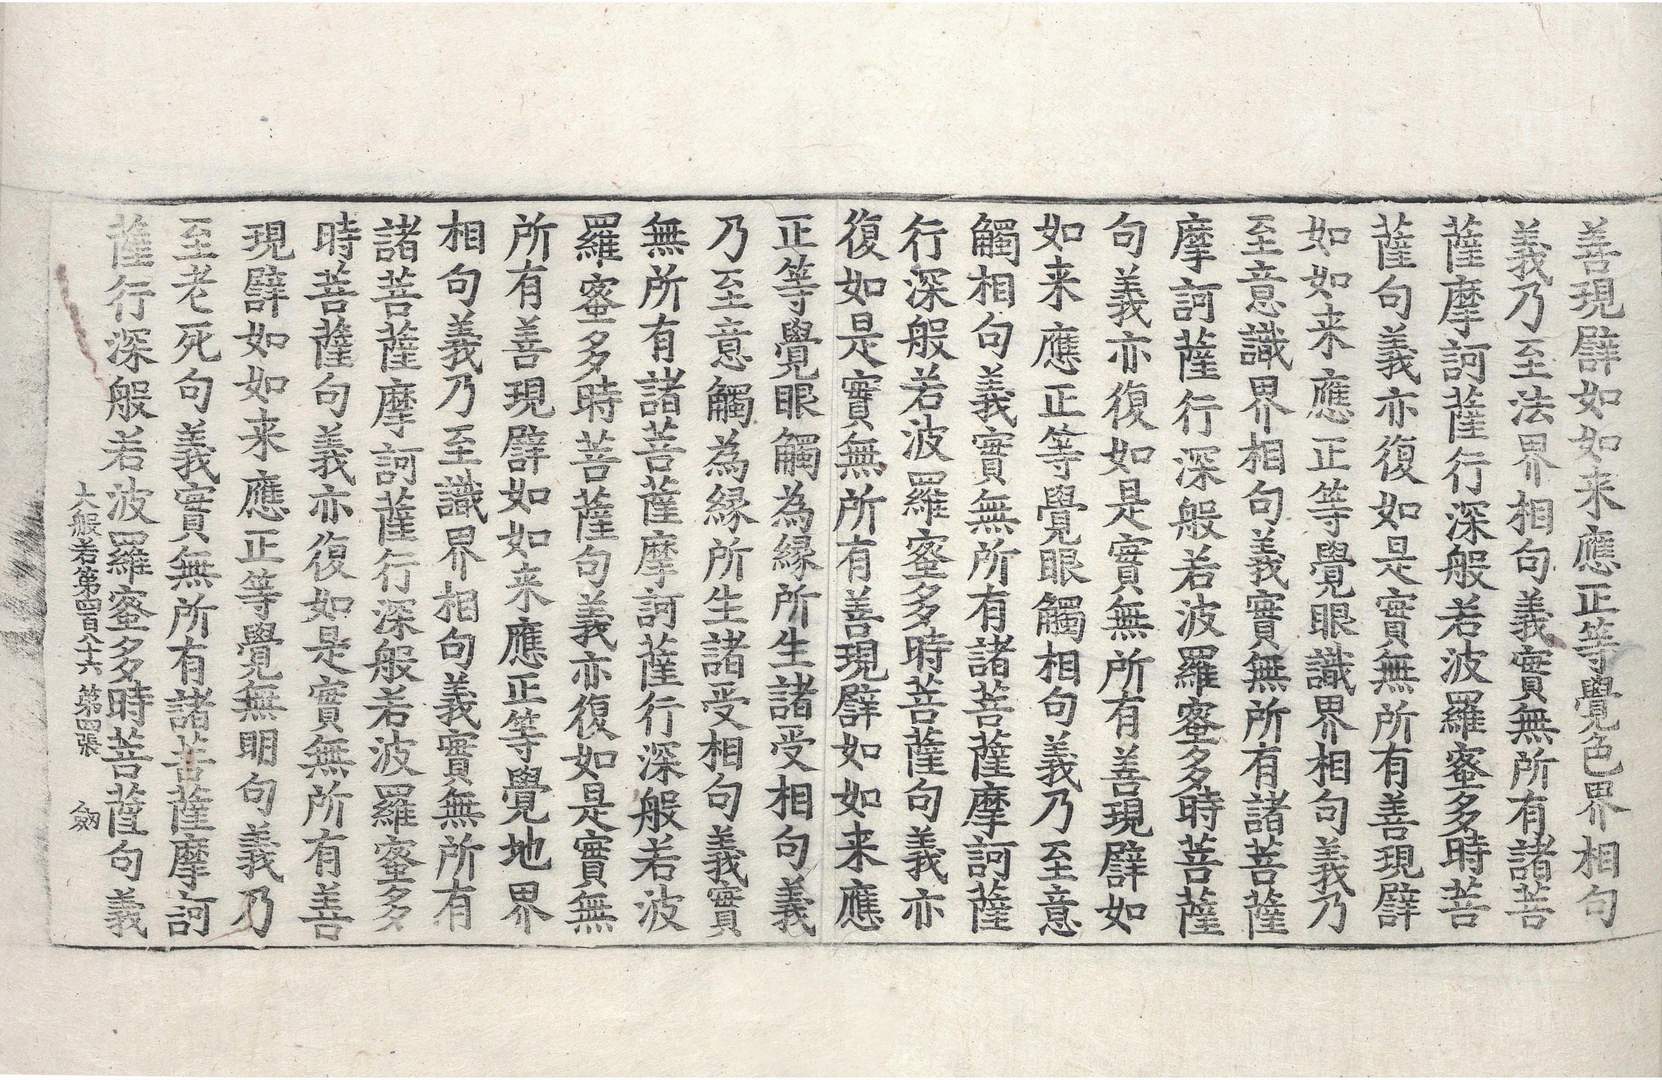 善現譬如如来應正等覺色界相句
義乃至法界相句義實無所有諸菩
薩摩訶薩行深般若波羅蜜多時菩
薩句義亦復如是實無所有善現譬
如如来應正等覺眼識界相句義乃
至意識界相句義實無所有諸菩薩
摩訶薩行深般若波羅蜜多時菩薩
句義亦復如是實無所有善現譬如
如来應正等覺眼觸相句義乃至意
觸相句義實無所有諸菩薩摩訶薩
行深般若波羅蜜多時菩薩句義亦
復如是實無所有善現譬如如来應
正等覺眼觸為緣所生諸受相句義
乃至意觸為緣所生諸受相句義實
無所有諸菩薩摩訶薩行深般若波
羅蜜多時菩薩句義亦復如是實無
所有善現譬如如来應正等覺地界
相句義乃至識界相句義實無所有
諸菩薩摩訶薩行深般若波羅蜜多
時菩薩句義亦復如是實無所有善
現譬如如来應正等覺無明句義乃
至老死句義實無所有諸菩薩摩訶
薩行深般若波羅蜜多時菩薩句義
大般若第四百八十六 第四張 劒